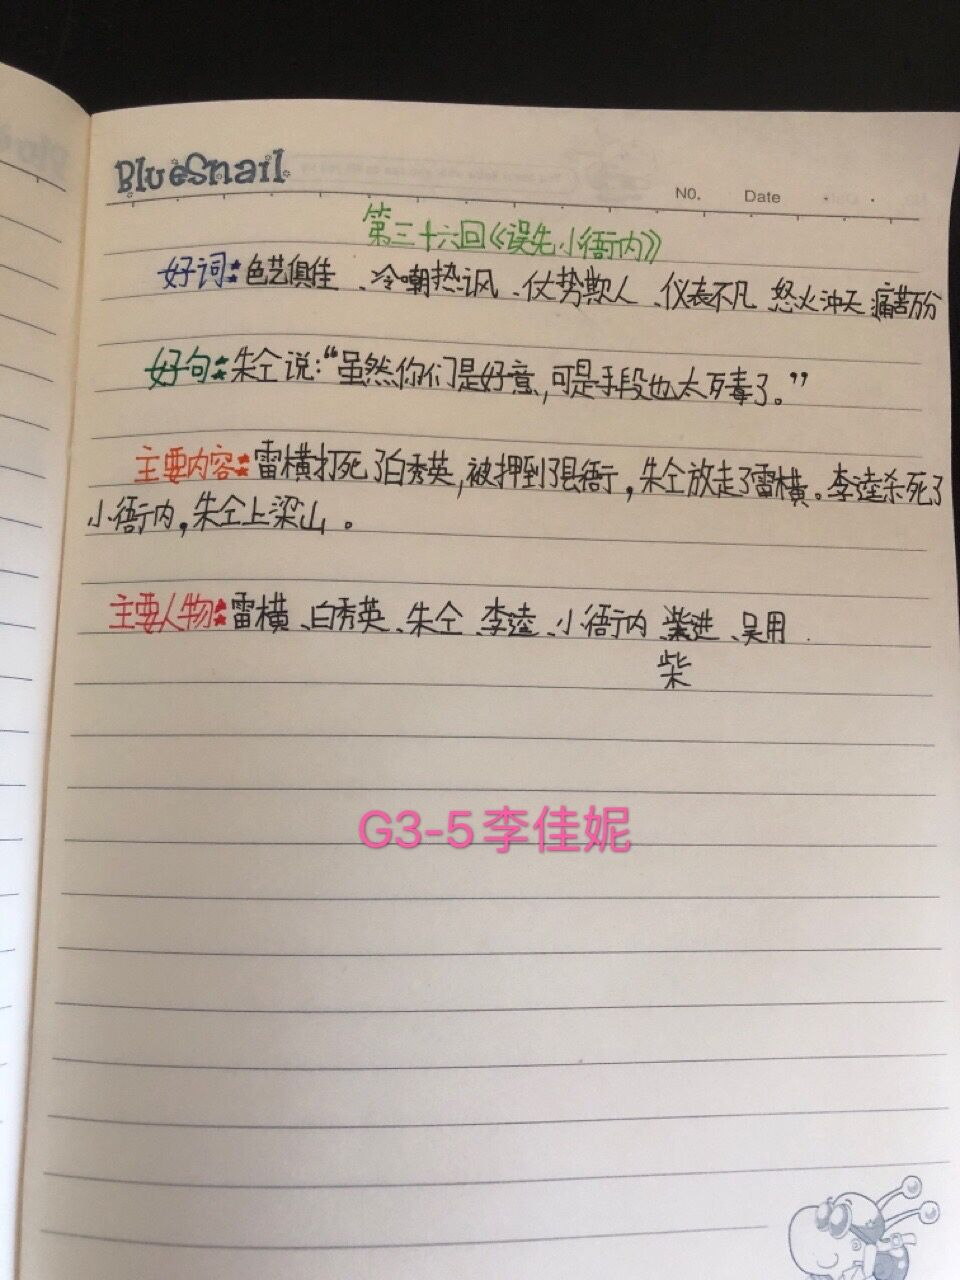 BlueSnail
NO. Date
第三十六回《误失小衙内》
好词:色艺俱佳、冷嘲热讽、仗势欺人、仪表不凡 怒火冲天 痛苦万分
好句:朱仝说:“虽然你们是好意,可是手段也太歹毒了。”
主要内容:雷横打死了白秀英,被押到了县衙,朱仝放走了雷横。李逵杀死了
小衙内,朱仝上梁山。
主要人物:雷横、白秀英、朱仝、李逵、小衙内、柴进、吴用
柴
G3-5李佳妮